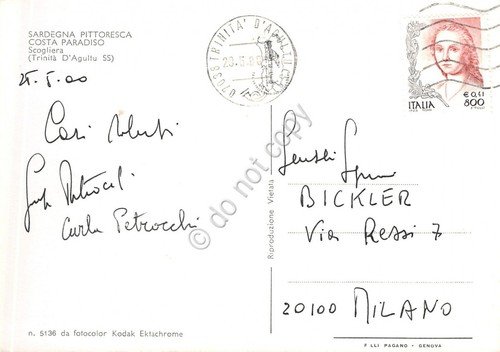 SARDEGNA PITTORESCA
COSTA PARADISO
Scogliera
(Trinità D'Agultu SS)
25.5.00
Cari saluti
Carla Petrocchi
n. 5136 da fotocolor Kodak Ektachrome
Riproduzione Vietata
TRINITA' D'AGULTU
ITALIA
€ 0,41
800
BICKLER
Via Rossi 7
20100 MILANO
F.LLI PAGANO - GENOVA
do not copy